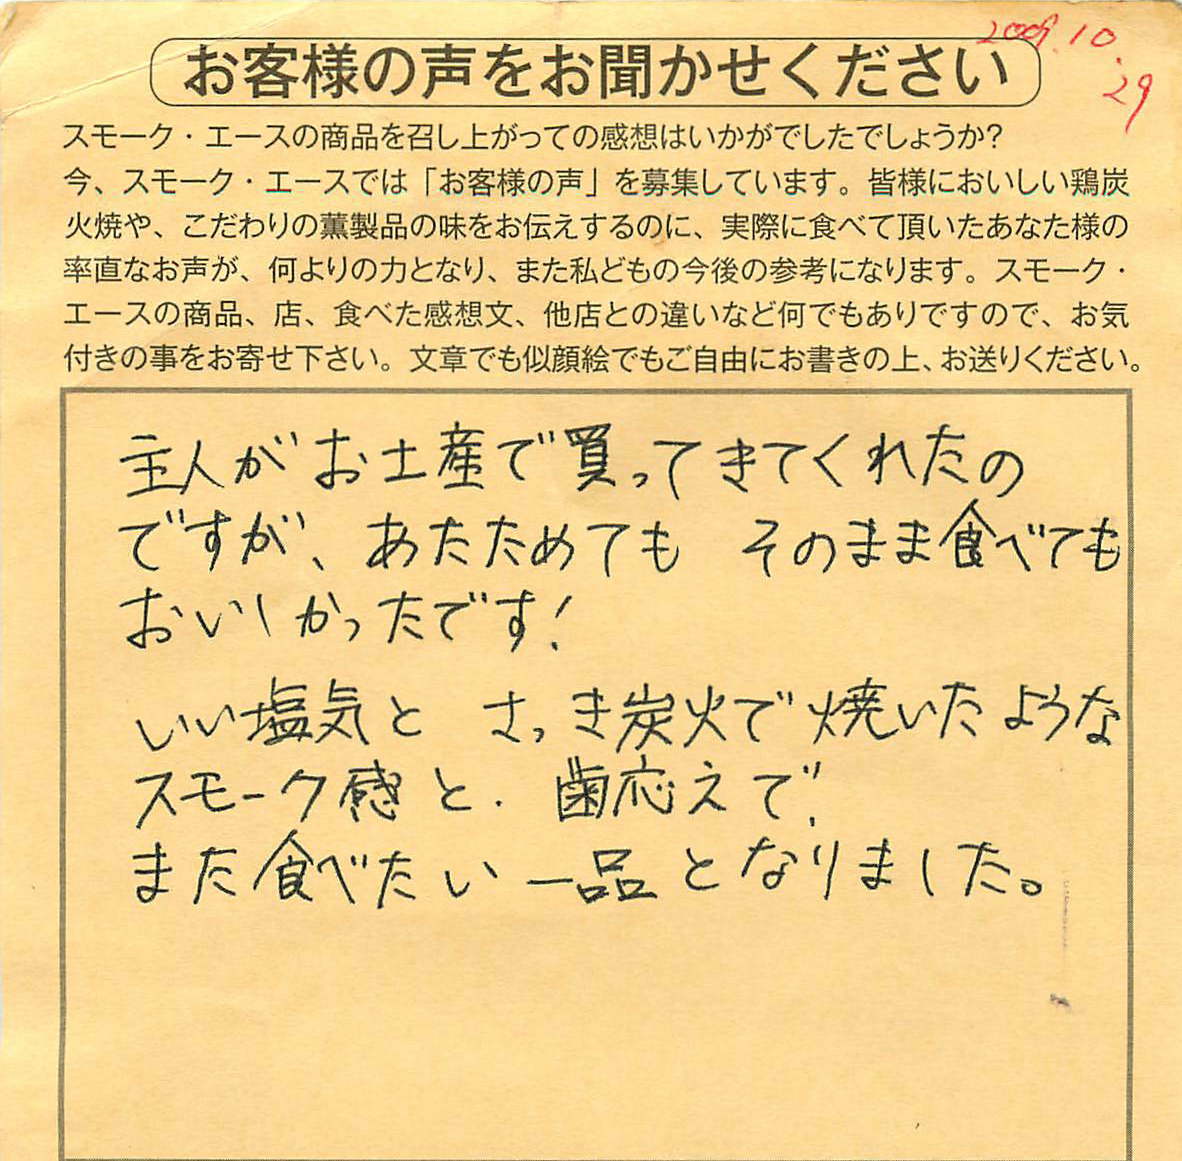 2009.10.29
お客様の声をお聞かせください
スモーク・エースの商品を召し上がっての感想はいかがでしたでしょうか?
今、スモーク・エースでは「お客様の声」を募集しています。皆様においしい鶏炭
火焼や、こだわりの薫製品の味をお伝えするのに、実際に食べて頂いたあなた様の
率直なお声が、何よりの力となり、また私どもの今後の参考になります。スモーク・
エースの商品、店、食べた感想文、他店との違いなど何でもありですので、お気
付きの事をお寄せ下さい。文章でも似顔絵でもご自由にお書きの上、お送りください。
主人がお土産で買ってきてくれたの
ですが、あたためても そのまま食べても
おいしかったです!
いい塩気と さっき炭火で焼いたような
スモーク感と、歯応えで、
また食べたい一品となりました。